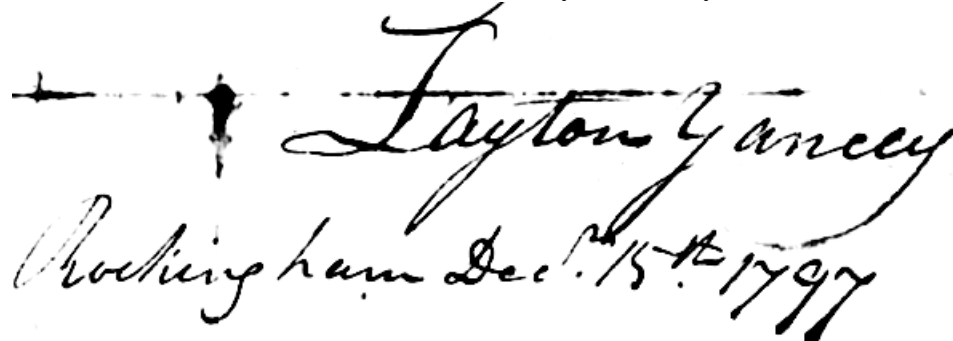 Layton Yancey
Rockingham Decr. 15th 1797